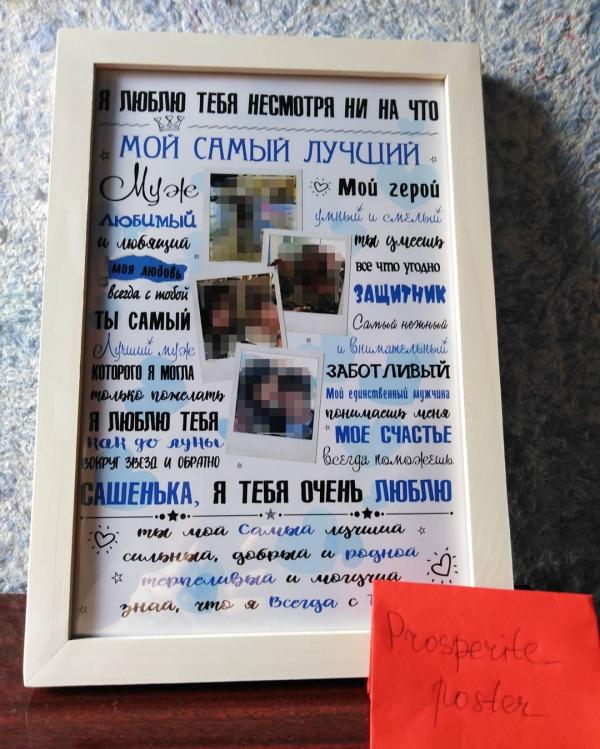 Я ЛЮБЛЮ ТЕБЯ НЕСМОТРЯ НИ НА ЧТО
МОЙ САМЫЙ ЛУЧШИЙ
Муж
ЛЮБИМЫЙ
и любящий
моя любовь
всегда с тобой
ТЫ САМЫЙ
Лучший муж
КОТОРОГО Я МОГЛА
только пожелать
Я ЛЮБЛЮ ТЕБЯ
как до луны
ВОКРУГ ЗВЕЗД И ОБРАТНО
Мой герой
умный и смелый
ты умеешь
все что угодно
ЗАЩИТНИК
Самый нежный
и внимательный
ЗАБОТЛИВЫЙ
Мой единственный мужчина
понимаешь меня
МОЕ СЧАСТЬЕ
всегда поможешь
САШЕНЬКА, Я ТЕБЯ ОЧЕНЬ ЛЮБЛЮ
ты мой самый лучший
сильный, добрый и родной
терпеливый и могучий
знай, что я всегда с
Prosperite_
poster